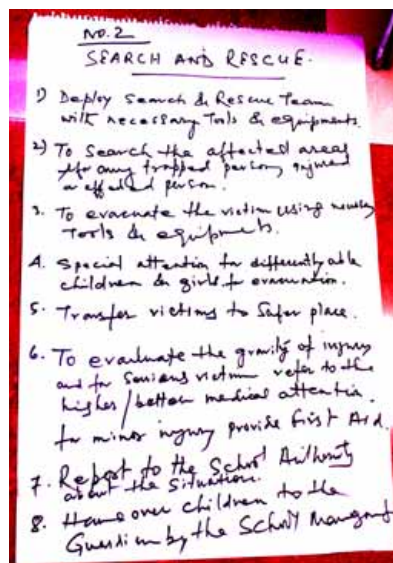 NO.2
SEARCH AND RESCUE.
1) Deploy Search & Rescue Team
with necessary Tools & equipments.
2) To Search the affected areas
for any trapped person, injured
or effected person.
3. To evacuate the victim using
Tools & equipments.
4. Special attention for differently able
children & girls for evacuation.
5. Transfer victims to Safer place.
6. To evaluate the gravity of injury
and for Serious victim refer to the
higher/better medical attention.
for minor injury provide First Aid.
7. Report to the School Authority
about the Situation.
8. Hand over children to the
Guardian by the School